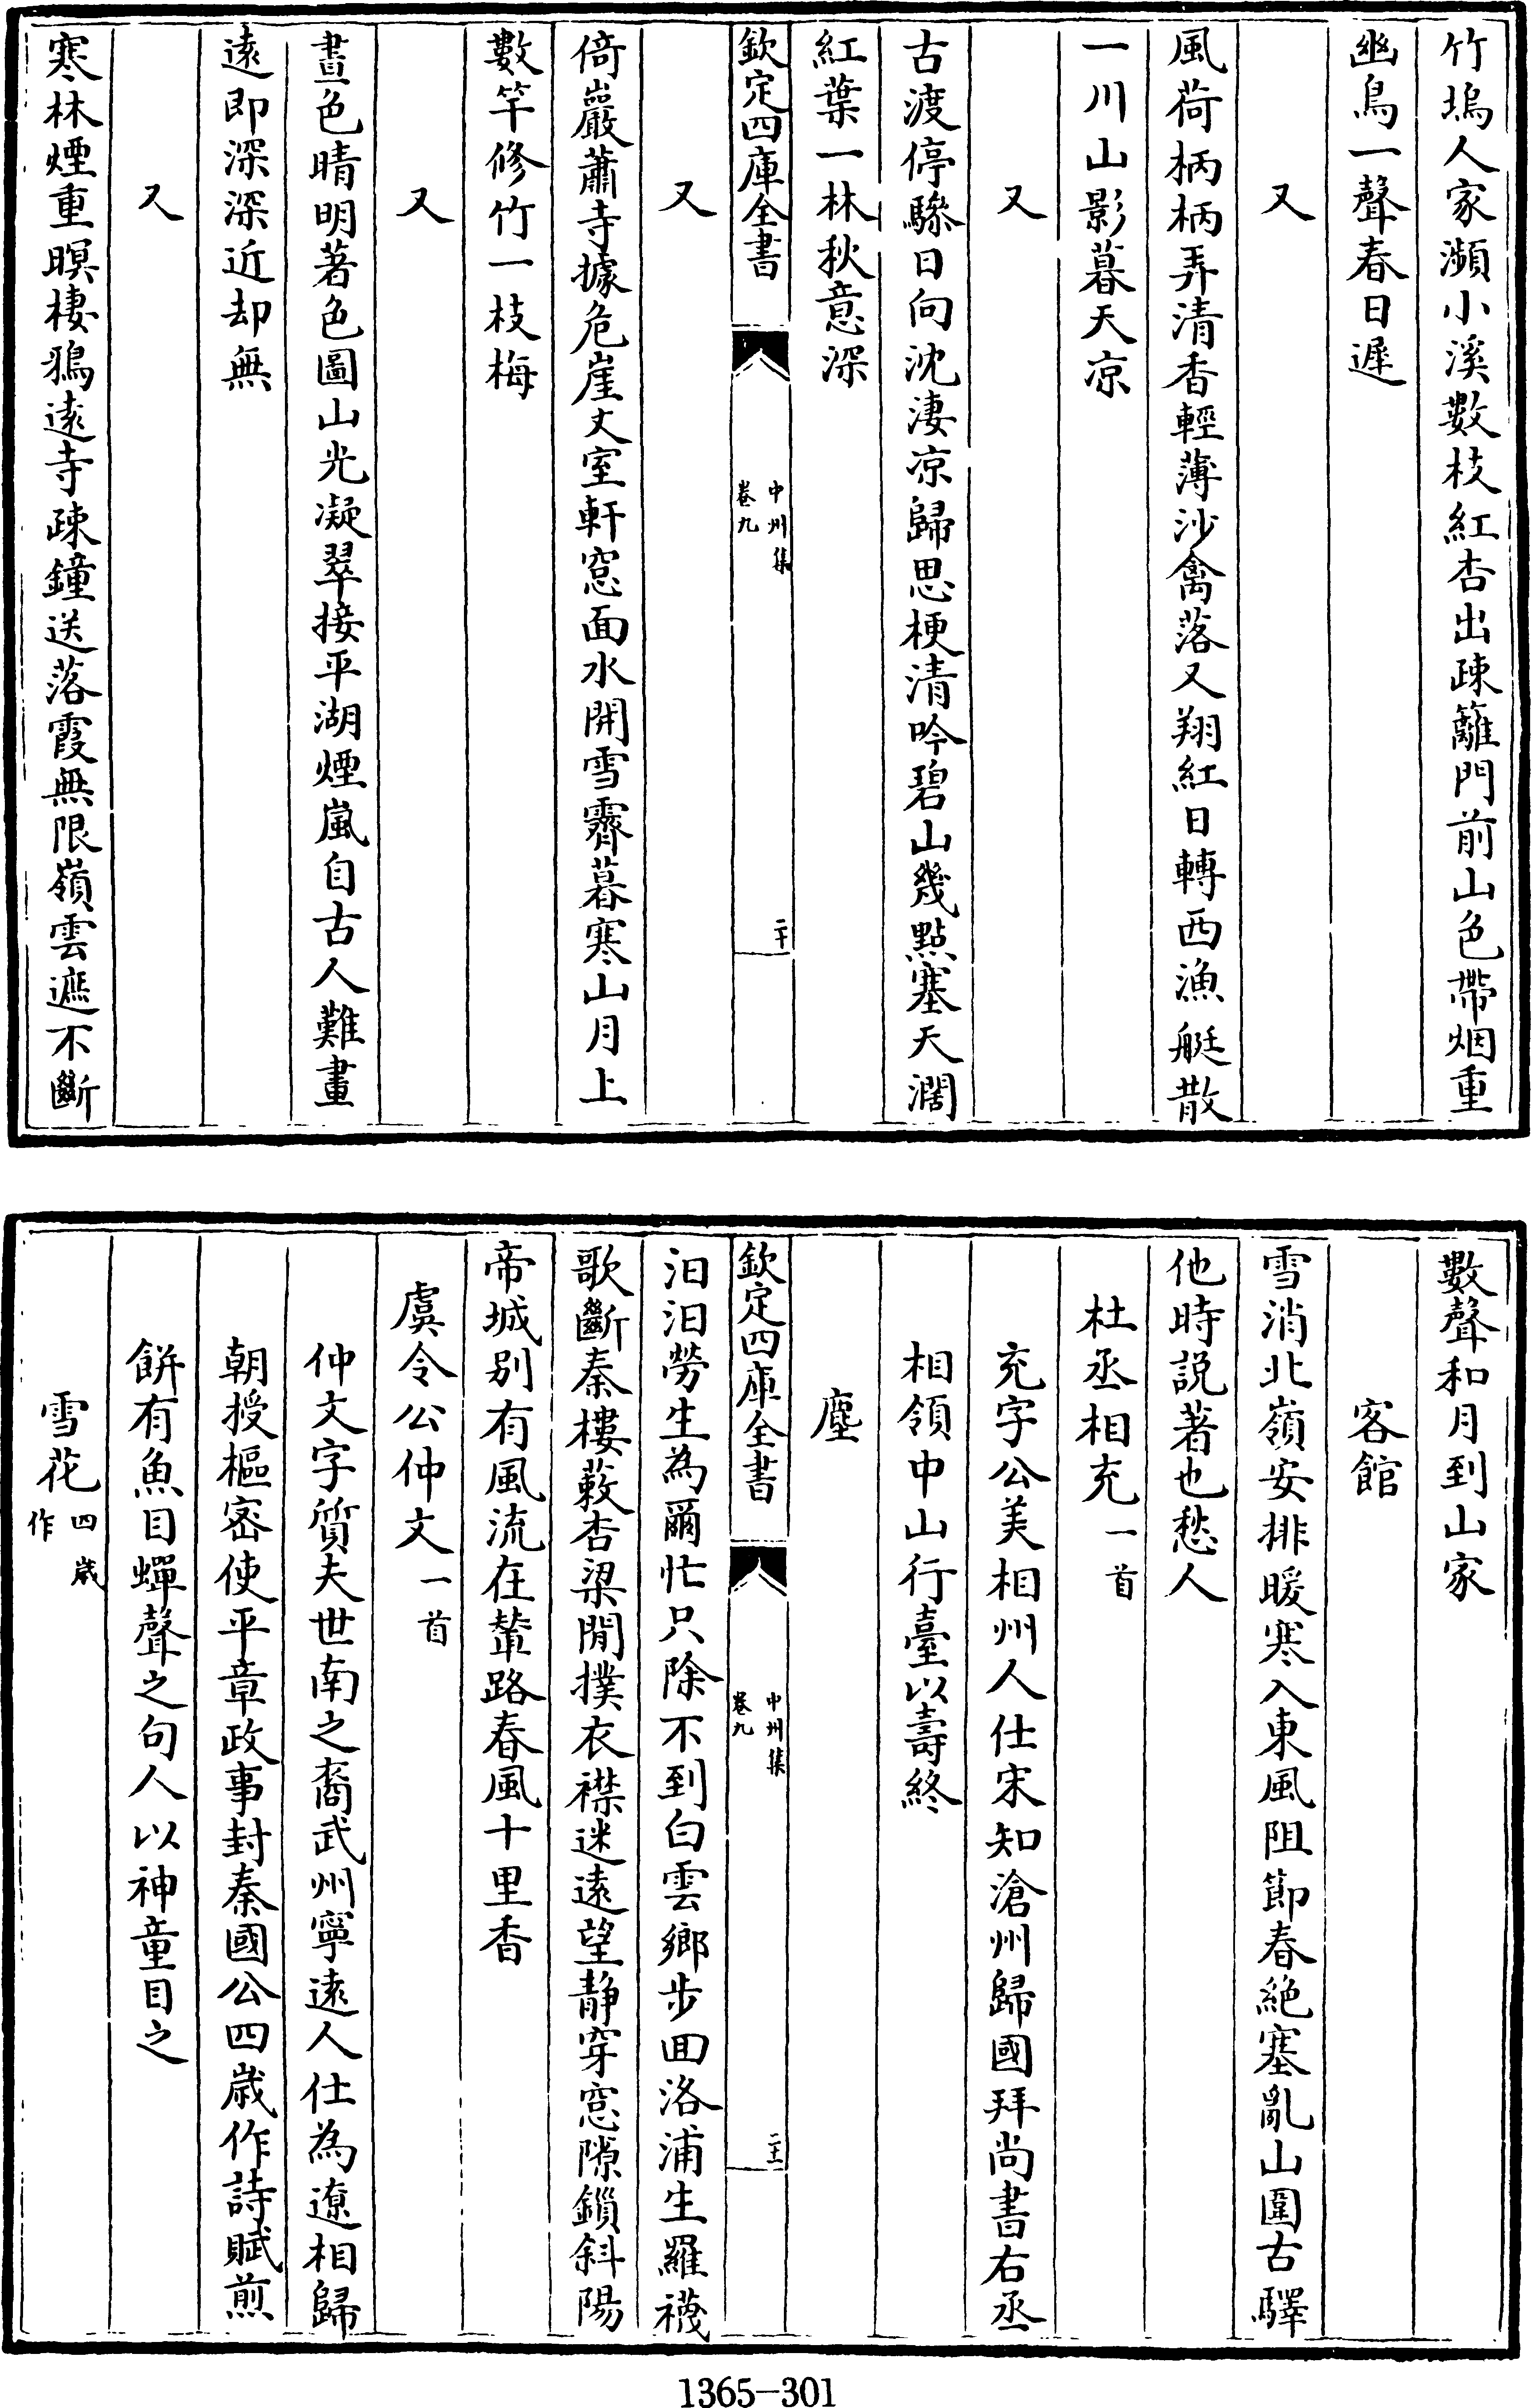 竹塢人家瀕小溪數枝紅杏出疎籬門前山色帶烟重
幽鳥一聲春日遲
又
風荷柄柄弄清香輕薄沙禽落又翔紅日轉西漁艇散
一川山影暮天凉
又
古渡停驂日向沈淒凉歸思梗清吟碧山幾點塞天濶
紅葉一林秋意深
欽定四庫全書
中州集
卷九
二十
又
倚巖蕭寺據危崖丈室軒窓面水開雪霽暮寒山月上
數竿修竹一枝梅
又
晝色晴明著色圖山光凝翠接平湖煙嵐自古人難畫
遠即深深近却無
又
寒林煙重暝棲鴉遠寺疎鐘送落霞無限嶺雲遮不斷
數聲和月到山家
客館
雪消北嶺安排暖寒入東風阻節春絶塞亂山圍古驛
他時説著也愁人
杜丞相充一首
充字公美相州人仕宋知滄州歸國拜尚書右丞
相領中山行臺以壽終
塵
汩汩勞生為爾忙只除不到白雲鄉步囬洛浦生羅襪
欽定四庫全書
中州集
卷九
二十一
歌斷秦樓蔌杏梁閒撲衣襟迷遠望静穿窓隙鎖斜陽
帝城别有風流在輦路春風十里香
虞令公仲文一首
仲文字質夫世南之裔武州寧遠人仕為遼相歸
朝授樞密使平章政事封秦國公四歲作詩賦煎
餅有魚目蟬聲之句人以神童目之
雪花四歲作
1365-301